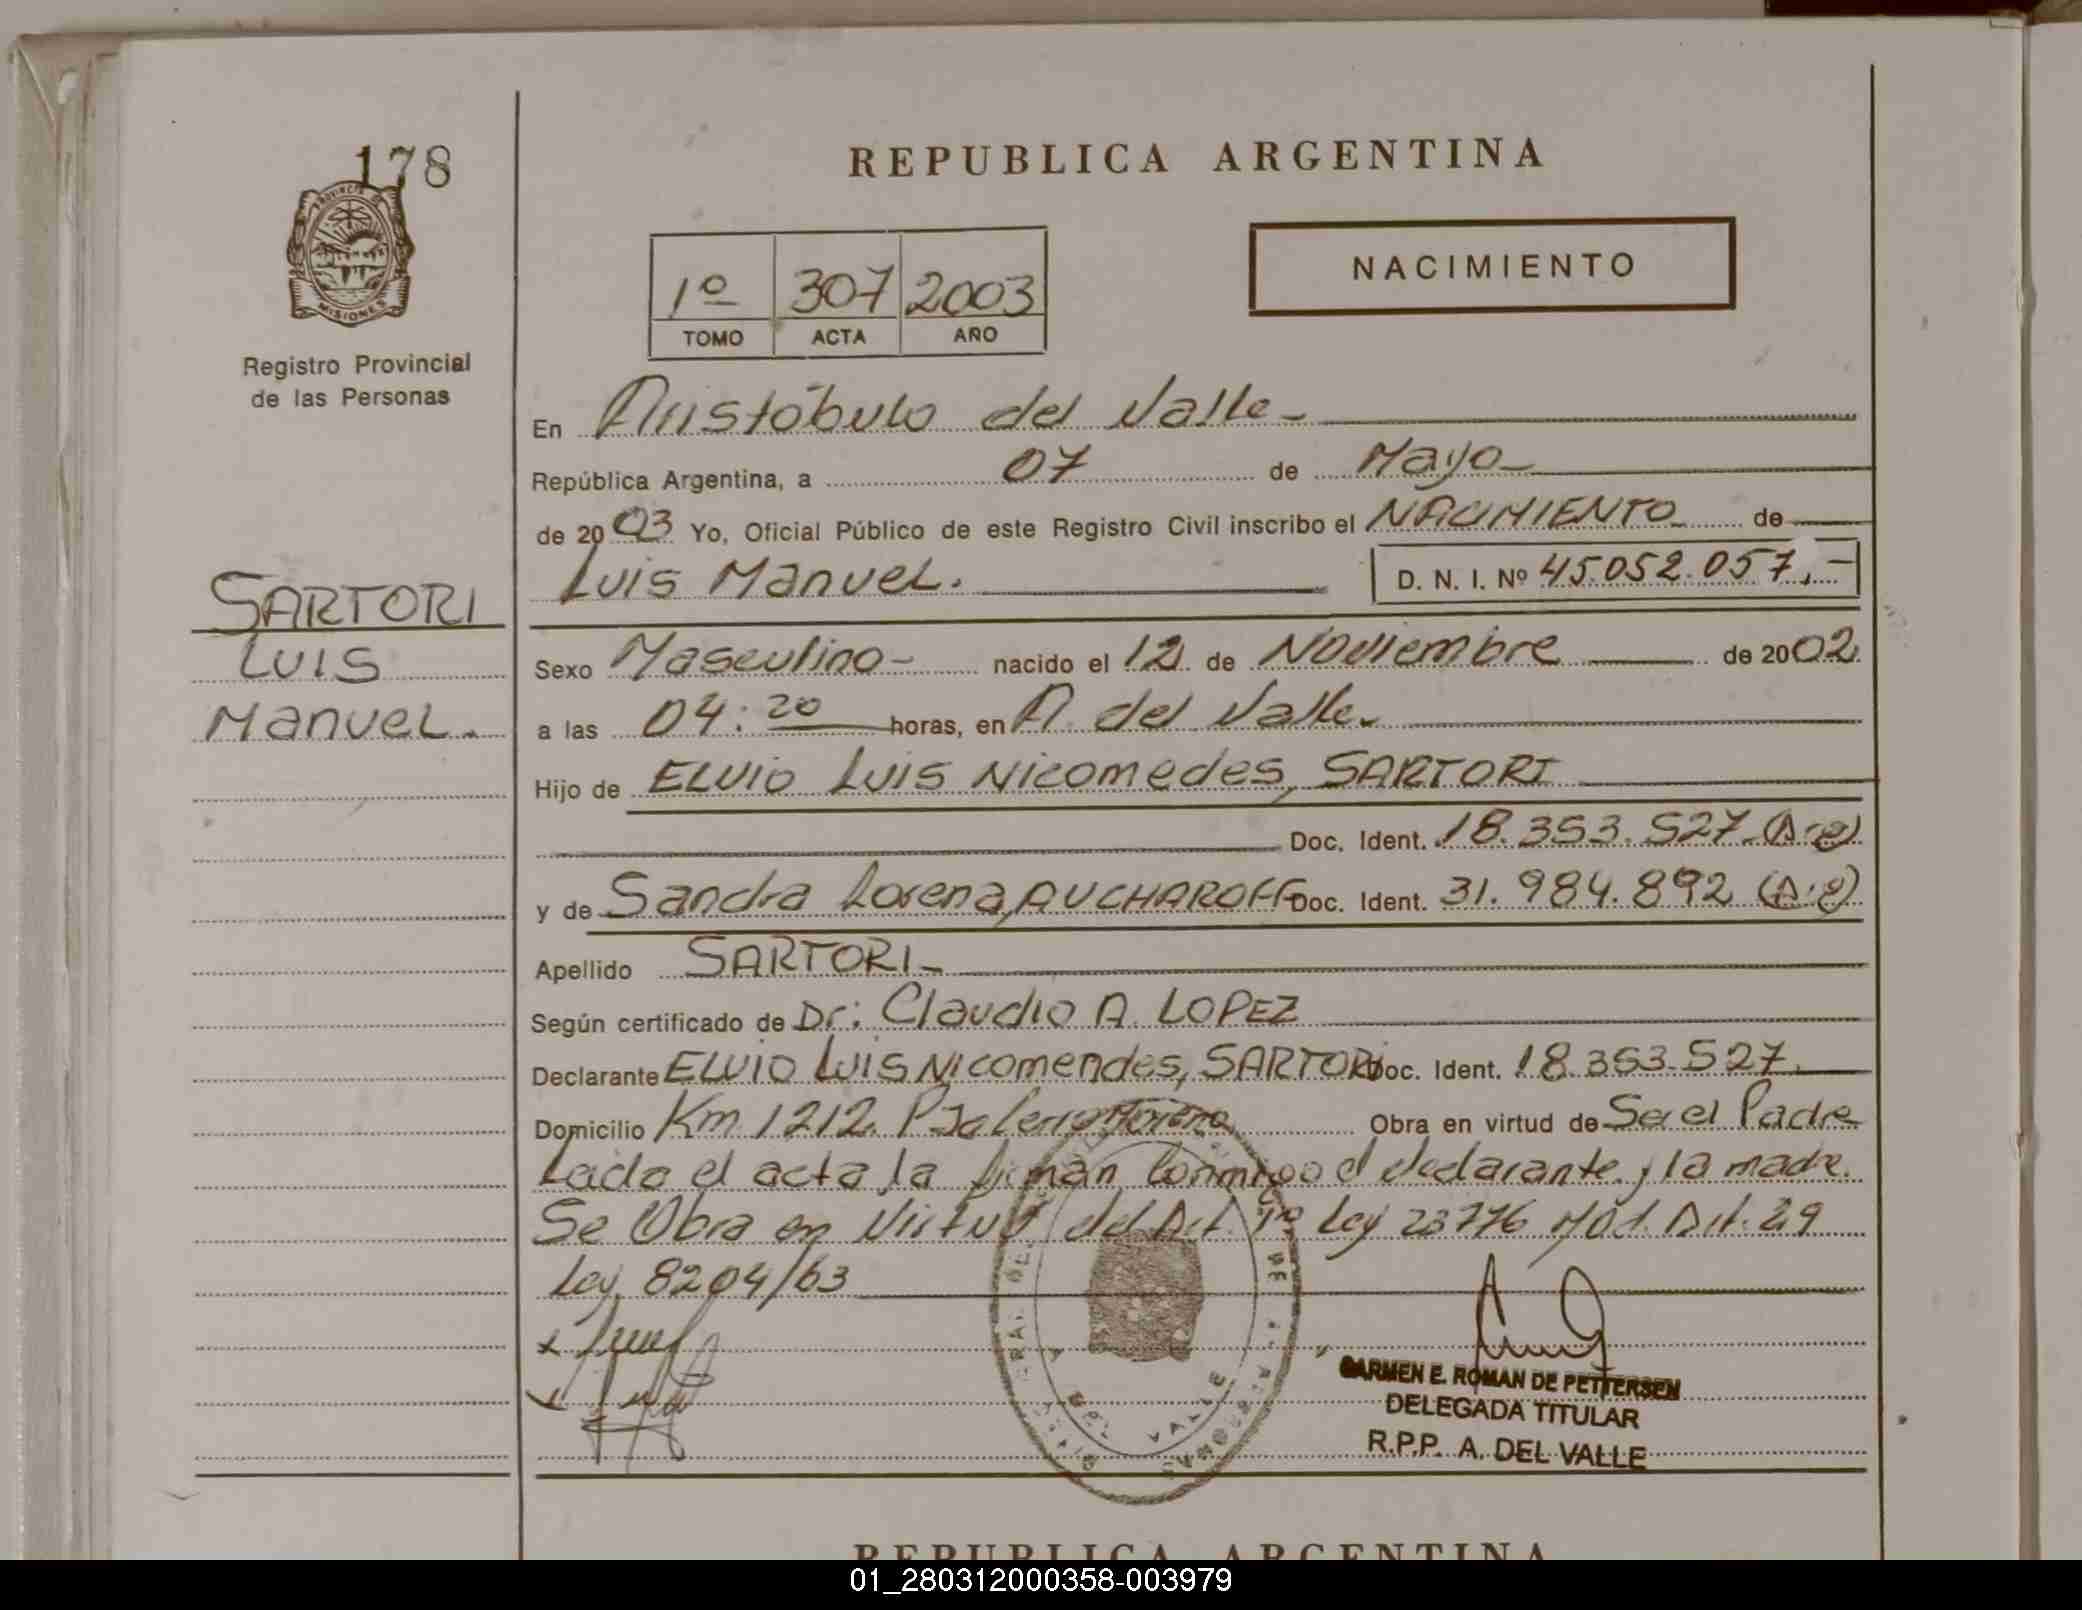 178
PROVINCIA DE
MISIONES
Registro Provincial
de las Personas
SARTORI
LUIS
Manuel.
REPUBLICA ARGENTINA
1º 307 2003
TOMO ACTA AÑO
NACIMIENTO
En Aristóbulo del Valle
República Argentina, a 07 de Mayo
de 2003 Yo, Oficial Público de este Registro Civil inscribo el NACIMIENTO de
Luis Manuel. D. N. I. Nº 45.052.057.-
Sexo Masculino- nacido el 12 de Noviembre de 2002
a las 04:20 horas, en A. del Valle.
Hijo de ELVIO LUIS Nicomedes, SARTORI
Doc. Ident. 18.353.527 (Arg)
y de Sandra Lorena, AUCHAROFF Doc. Ident. 31.984.892 (Arg)
Apellido SARTORI-
Según certificado de Dr: Claudio A. LOPEZ
Declarante ELVIO LUIS Nicomendes, SARTORI Doc. Ident. 18.353.527.
Domicilio Km 1212. Obra en virtud de Ser el Padre
Leida el acta, la firman conmigo el declarante y la madre.
Se Obra en Virtud del Art. 1º Ley 23776 Mod. Art. 29
Ley 8204/63
DEL VALLE
CARMEN E. ROMAN DE PETTERSEN
DELEGADA TITULAR
R.P.P. A. DEL VALLE
REPUBLICA ARGENTINA
01_280312000358-003979